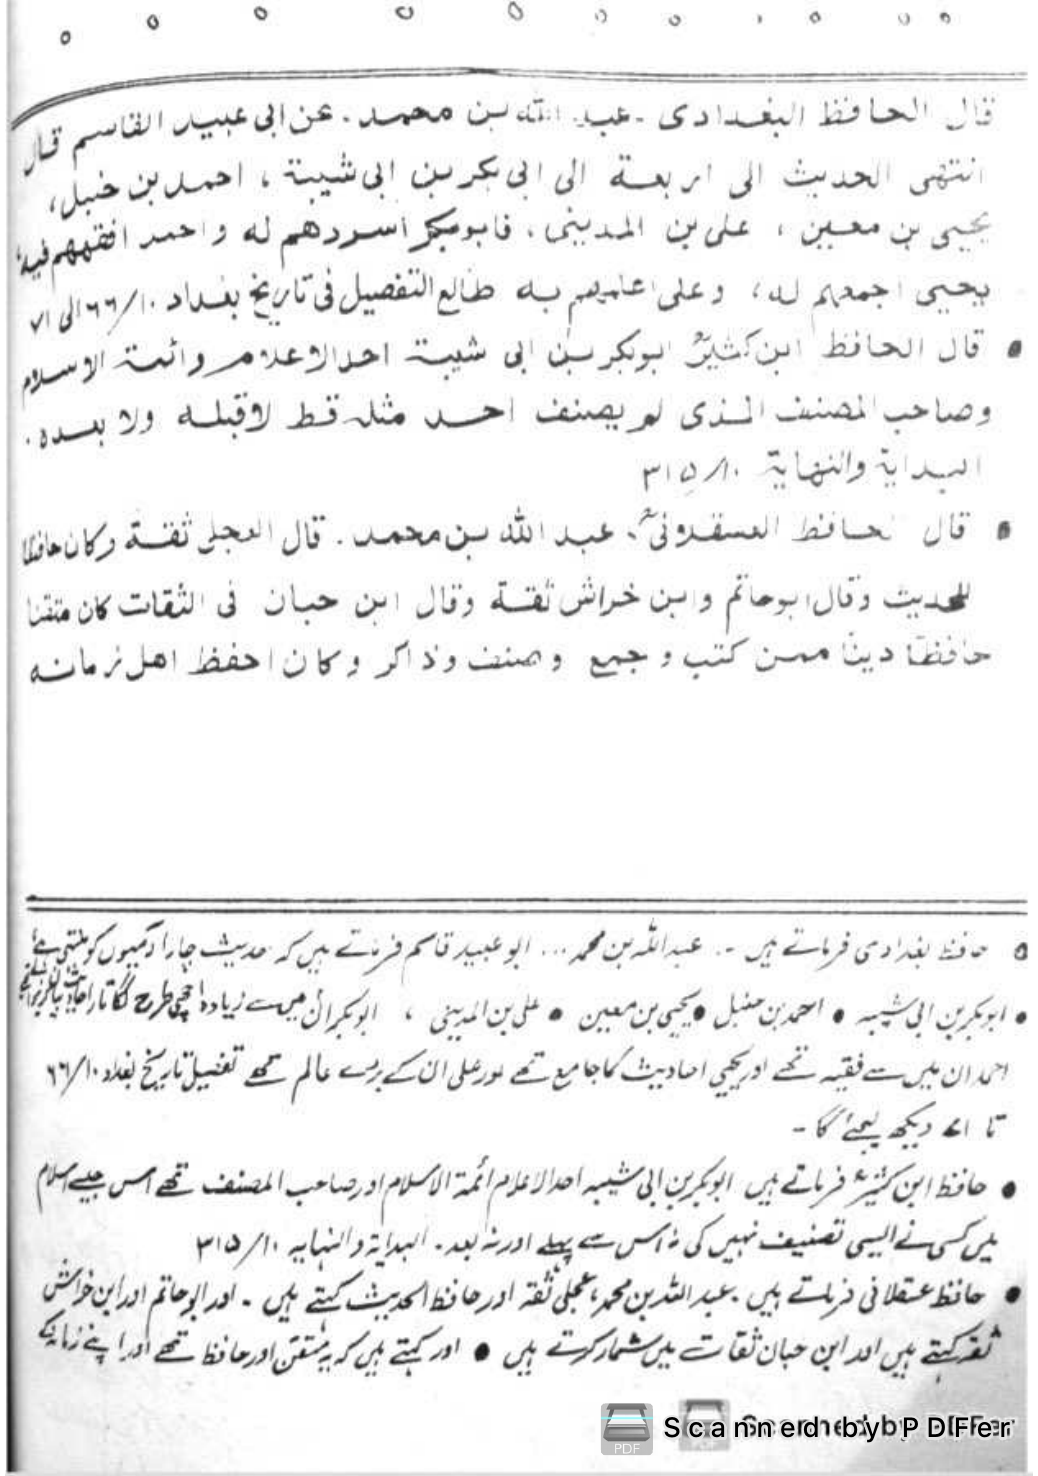 قال الحافظ البغدادى - عبد الله بن محمد - عن ابى عبيد القاسم قال
انتهى الحديث الى اربعة الى ابى بكر بن ابى شيبة ، احمد بن حنبل،
يحيى بن معين ، على بن المدينى، فابوبكر اسردهم له واحمد افقههم فيه،
يحيى اجمعهم له، وعلى اعلمهم به طالع التفصيل فى تاريخ بغداد ۱۰/۶۶ الى ۷۱
• قال الحافظ ابن كثيرؒ ابوبكر بن ابى شيبة احد الاعلام وائمة الاسلام
وصاحب المصنف الذى لم يصنف احد مثله قط لا قبله ولا بعده.
البداية والنهاية ۱۰/۳۱۵
• قال الحافظ العسقلانىؒ، عبد الله بن محمد. قال العجلى ثقة وكان حافظا
للحديث وقال ابوحاتم وابن خراش ثقة وقال ابن حبان فى الثقات كان متقنا
حافظا دينا ممن كتب وجمع وصنف وذاكر وكان احفظ اهل زمانه
• حافظ بغدادی فرماتے ہیں -. عبداللہ بن محمد ... ابو عبید قاسم فرماتے ہیں کہ حدیث چار آدمیوں کو منتہی ہے
• ابوبکر بن ابی شیبہ • احمد بن حنبل • یحیی بن معین • علی بن المدینی ، ابوبکر ان میں سے زیادہ اچھی طرح لگاتار احادیث
احمد ان میں سے فقیہ تھے اور یحیی احادیث کا جامع تھے اور علی ان کے بڑے عالم تھے تفصیل تاریخ بغداد ۱۰/۶۶
تا ۷۱ دیکھ لیجئے گا -
• حافظ ابن کثیرؒ فرماتے ہیں ابوبکر بن ابی شیبہ احد الاعلام ائمۃ الاسلام اور صاحب المصنف تھے اس جیسے اسلام
میں کسی نے ایسی تصنیف نہیں کی نہ اس سے پہلے اور نہ بعد. البدایۃ والنہایہ ۱۰/۳۱۵
• حافظ عسقلانی فرماتے ہیں. عبداللہ بن محمد، عجلی ثقہ اور حافظ الحدیث کہتے ہیں - اور ابوحاتم اور ابن خراش
ثقہ کہتے ہیں اور ابن حبان ثقات میں شمار کرتے ہیں • اور کہتے ہیں کہ یہ متقن اور حافظ تھے اور اپنے زمانہ کے
PDF Scanned by PDFer